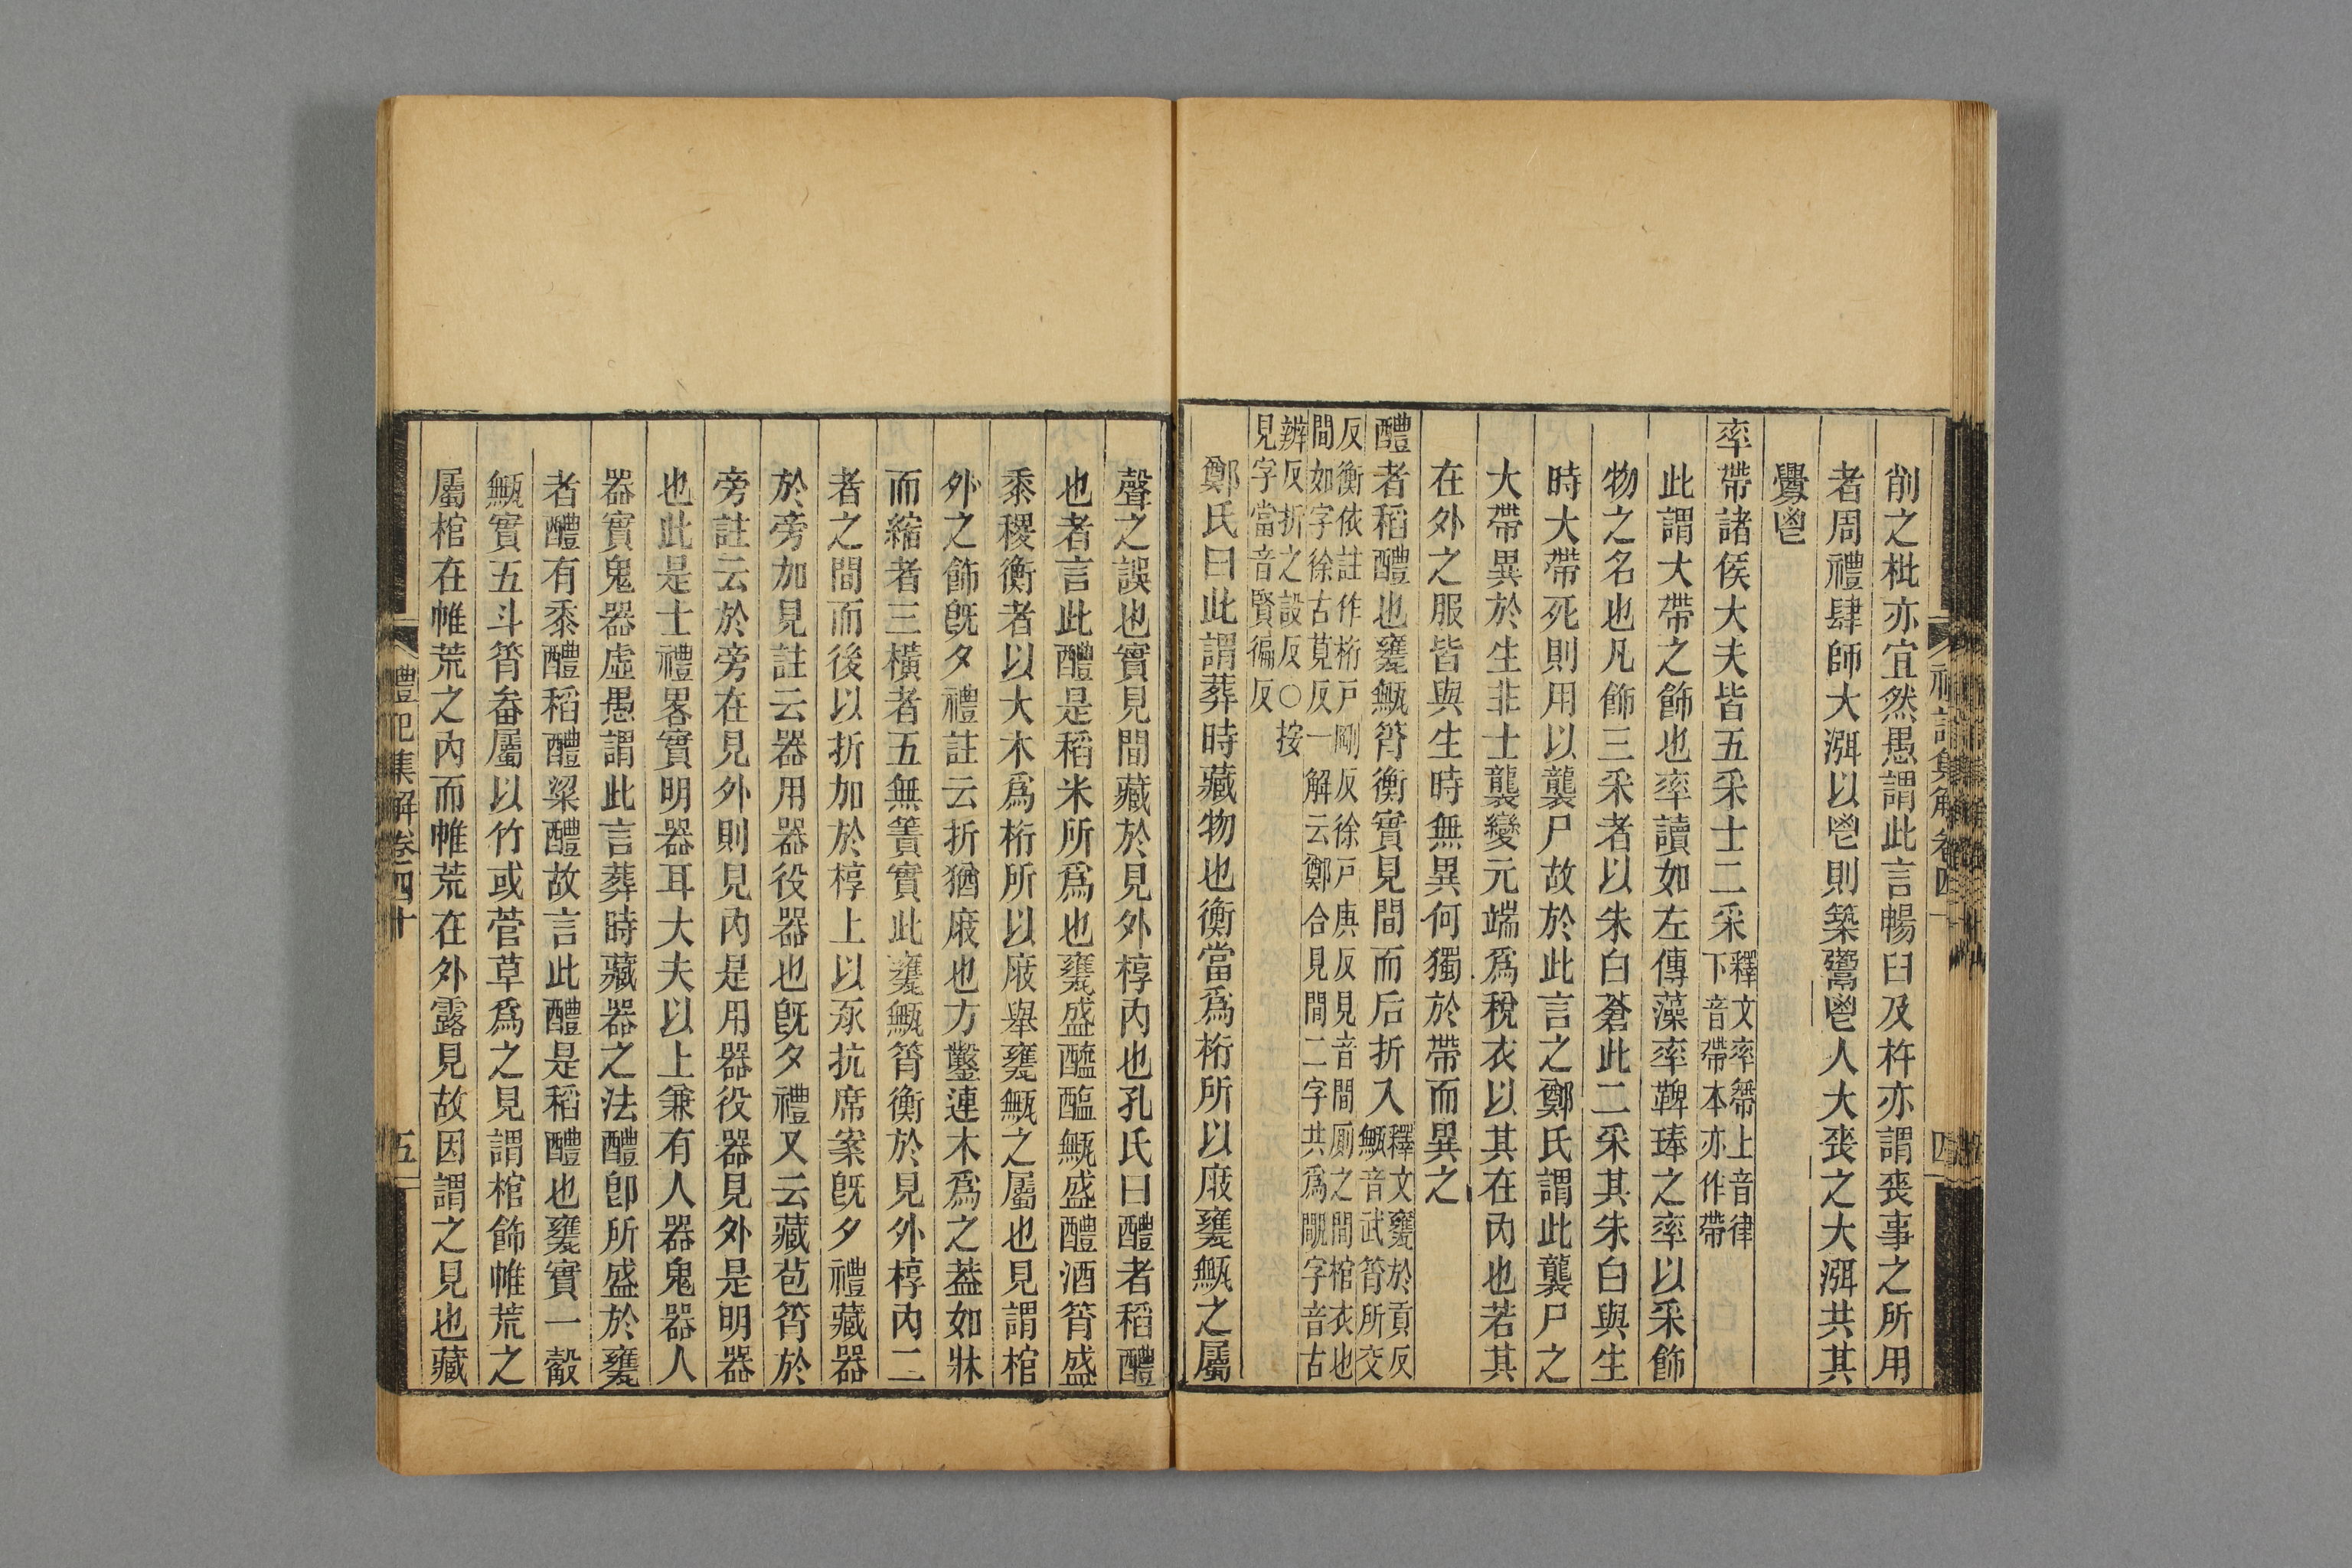 削之枇亦宜然愚謂此言暢臼及杵亦謂喪事之所用
者周禮肆師大渳以鬯則築鬻鬯人大喪之大渳共其
釁鬯
率帶諸侯大夫皆五采士二采釋文率繂上音律下音帶本亦作帶
此謂大帶之飾也率讀如左傳藻率鞞琫之率以采飾
物之名也凡飾三采者以朱白蒼此二采其朱白與生
時大帶死則用以襲尸故於此言之鄭氏謂此襲尸之
大帶異於生非士襲變元端爲稅衣以其在內也若其
在外之服皆與生時無異何獨於帶而異之
醴者稻醴也甕甒筲衡實見間而后折入釋文甕於貢反甒音武筲所交
反衡依註作桁戸剛反徐戸庚反見音間厠之間棺衣也
間如字徐古莧反一解云鄭合見間二字共爲覵字音古
辨反折之設反○按
見字當音賢徧反
鄭氏曰此謂葬時藏物也衡當爲桁所以庪甕甒之屬
聲之誤也實見間藏於見外椁內也孔氏曰醴者稻醴
也者言此醴是稻米所爲也甕盛醯醢甒盛醴酒筲盛
黍稷衡者以大木爲桁所以庪舉甕甒之屬也見謂棺
外之飾旣夕禮註云折猶庪也方鑿連木爲之蓋如牀
而縮者三橫者五無簀實此甕甒筲衡於見外椁內二
者之間而後以折加於椁上以承抗席案旣夕禮藏器
於旁加見註云器用器役器也旣夕禮又云藏苞筲於
旁註云於旁在見外則見內是用器役器見外是明器
也此是士禮畧實明器耳大夫以上兼有人器鬼器人
器實鬼器虛愚謂此言葬時藏器之法醴卽所盛於甕
者醴有黍醴稻醴粱醴故言此醴是稻醴也甕實一觳
甒實五斗筲畚屬以竹或菅草爲之見謂棺飾帷荒之
屬棺在帷荒之內而帷荒在外露見故因謂之見也藏
禮記集解卷四十
五